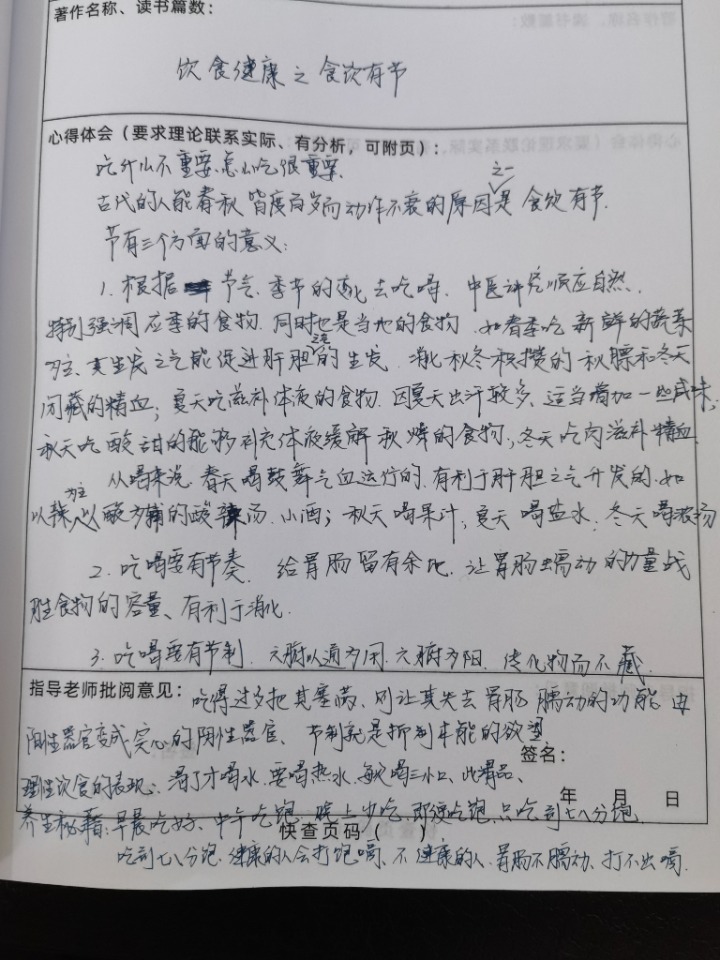 著作名称、读书篇数：
饮食健康之食饮有节
心得体会（要求理论联系实际、有分析，可附页）：
吃什么不重要，怎么吃很重要。
之一
古代的人能春秋皆度百岁而动作不衰的原因是食饮有节.
节有三个方面的意义：
1. 根据节气、季节的变化去吃喝. 中医讲究顺应自然，
特别强调应季的食物. 同时也是当地的食物. 如春季吃新鲜的蔬菜
为主、其生发之气能促进肝胆之气的生发. 消化秋冬积攒的秋膘和冬天
闭藏的精血；夏天吃滋补体液的食物. 因夏天出汗较多，适当增加一些咸味；
秋天吃酸甜的能够补充体液缓解秋燥的食物；冬天吃肉滋补精血.
从喝来说. 春天喝鼓舞气血运行的. 有利于肝胆之气升发的. 如
以辣为主以酸为辅的酸辣汤. 小酒；秋天喝果汁；夏天喝盐水；冬天喝浓汤
2. 吃喝要有节奏. 给胃肠留有余地. 让胃肠蠕动的力量战
胜食物的容量、有利于消化.
3. 吃喝要有节制. 六腑以通为用. 六腑为阳. 传化物而不藏.
指导老师批阅意见：
吃得过多把其塞满、则让其失去胃肠蠕动的功能. 由
阳性器官变成实心的阴性器官、节制就是抑制本能的欲望.
签名：
理性饮食的表现：渴了才喝水. 要喝热水. 每喝三小口、此谓品、
年 月 日
养生秘籍：早晨吃好、中午吃饱. 晚上少吃. 即便吃饱. 只吃到七八分饱.
快查页码（ ）
吃到七八分饱. 健康的人会打饱嗝. 不健康的人. 胃肠不蠕动、打不出嗝.